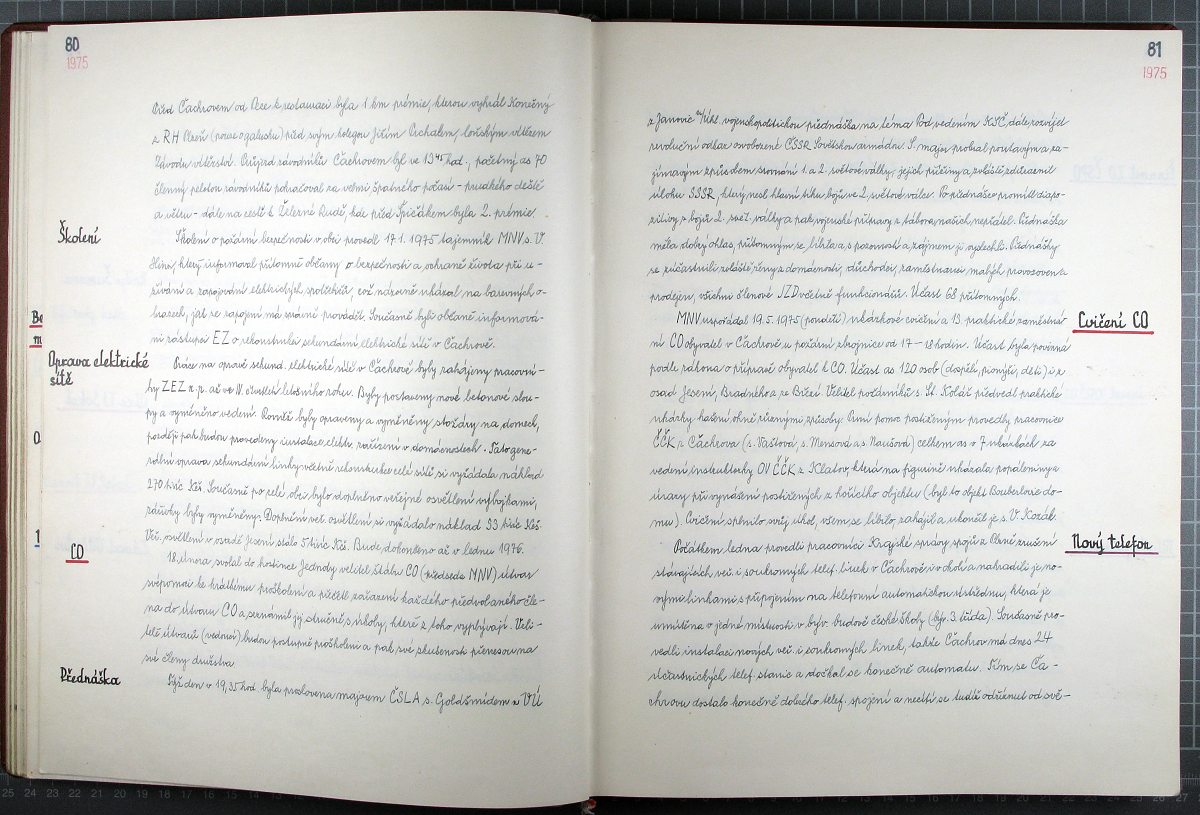 80
1975
Před Čachrovem od Pece k restauraci byla 1 km prémie, kterou vyhrál Konečný
z RH Plzeň (nouze o galusku) před svým kolegou Jiřím Prchalem, loňským vítězem
Závodu vítězství. Průjezd závodníků Čachrovem byl ve 13 45 hod., početný as 70
členný peloton závodníků pokračoval za velmi špatného počasí - prudkého deště
a větru - dále na cestě k Železné Rudě, kde před Špičákem byla 2. prémie.
Školení
Školení o požární bezpečnosti v obci provedl 17.1.1975 tajemník MNV s. V.
Hlína, který informoval přítomné občany o bezpečnosti a ochraně života při u-
žívání a zapojování elektrických spotřebičů, což názorně ukázal na barevných o-
brazech, jak se zapojení má správně provádět. Současně byli občané informová-
ni zástupci EZ o rekonstrukci sekundární elektrické sítě v Čachrově.
Oprava elektrické
sítě
Práce na opravě sekund. elektrické sítě v Čachrově byly zahájeny pracovní-
ky ZEZ n.p. až ve IV. čtvrtletí letošního roku. Byly postaveny nové betonové slou-
py a vyměněno vedení. Rovněž byly opraveny a vyměněny stožáry na domech,
později pak budou provedeny instalace elektr. zařízení v domácnostech. Tato gene-
rální oprava sekundární linky včetně rekonstrukce celé sítě si vyžádala náklad
270 tisíc Kčs. Současně po celé obci bylo doplněno veřejné osvětlení výbojkami,
žárovky byly vyměněny. Doplnění veř. osvětlení si vyžádalo náklad 33 tisíc Kčs.
Veř. osvětlení v osadě Jesení stálo 5 tisíc Kčs. Bude dokončeno až v lednu 1976.
CO
18. února svolal do hostince Jednoty velitel štábu CO (předseda MNV) útvar
svépomoci ke krátkému proškolení a přečetl zařazení každého předvolaného čle-
na do útvaru CO a seznámil jej stručně s úkoly, které z toho vyplývají. Veli-
telé útvarů (vedoucí) budou postupně proškoleni a pak své zkušenosti přenesou na
své členy družstva.
Přednáška
Týž den v 19,35 hod. byla proslovena majorem ČSLA s. Goldšmídem z VÚ
81
1975
z Janovic n/Úhl. vojenskopolitickou přednáška na téma Pod vedením KSČ, dále rozvíjet
revoluční odkaz osvobození ČSSR Sovětskou armádou. S. major probral poutavým a za-
jímavým způsobem srovnání 1. a 2. světové války, jejich příčiny a zvláště zdůraznil
úlohu SSSR, který nesl hlavní tíhu bojů ve 2. světové válce. Po přednášce promítl diapo-
zitivy z bojů 2. svět. války a pak vojenské přípravy z tábora našich nepřátel. Přednáška
měla dobrý ohlas, přítomným se líbila a s pozorností a zájmem ji vyslechli. Přednášky
se zúčastnili zvláště ženy z domácnosti, důchodci, zaměstnanci malých provozoven a
prodejen, všichni členové JZD včetně funkcionářů. Účast 68 přítomných.
Cvičení CO
MNV uspořádal 19.5.1975 (pondělí) ukázkové cvičení a 19. praktické zaměstná-
ní CO obyvatel v Čachrově u požární zbrojnice od 17-18 hodin. Účast byla povinná
podle zákona o přípravě obyvatel k CO. Účast as 120 osob (dospělí, pionýři, děti) i z
osad Jesení, Bradného a z Březí. Velitel požárníků s. St. Kolář předvedl praktické
ukázky hašení ohně různými způsoby. První pomoc postiženým provedly pracovnice
ČČK z Čachrova (s. Vaštová, s. Mensová a s. Maušová) celkem as v 7 ukázkách za
vedení instruktorky OV ČČK z Klatov, která na figuríně ukázala popáleniny a
úrazy při vynášení postižených z hořícího objektu (byl to objekt Bouberlově do-
mu). Cvičení splnilo svůj úkol, všem se líbilo, zahájil a ukončil je s. V. Kozák.
Nový telefon
Počátkem ledna provedli pracovníci Krajské správy spojů z Plzně zrušení
stávajících veř. i soukromých telef. linek v Čachrově i v okolí a nahradili je no-
vými linkami s připojením na telefonní automatickou ústřednu, která je
umístěna v jedné místnosti v býv. budově české školy (býv. 3. třída). Současně pro-
vedli instalaci nových veř. i soukromých linek, takže Čachrov má dnes 24
účastnických telef. stanic a dočkal se konečně automatu. Tím se Ča-
chrovu dostalo konečně dobrého telef. spojení a necítí se tudíž odříznut od svě-